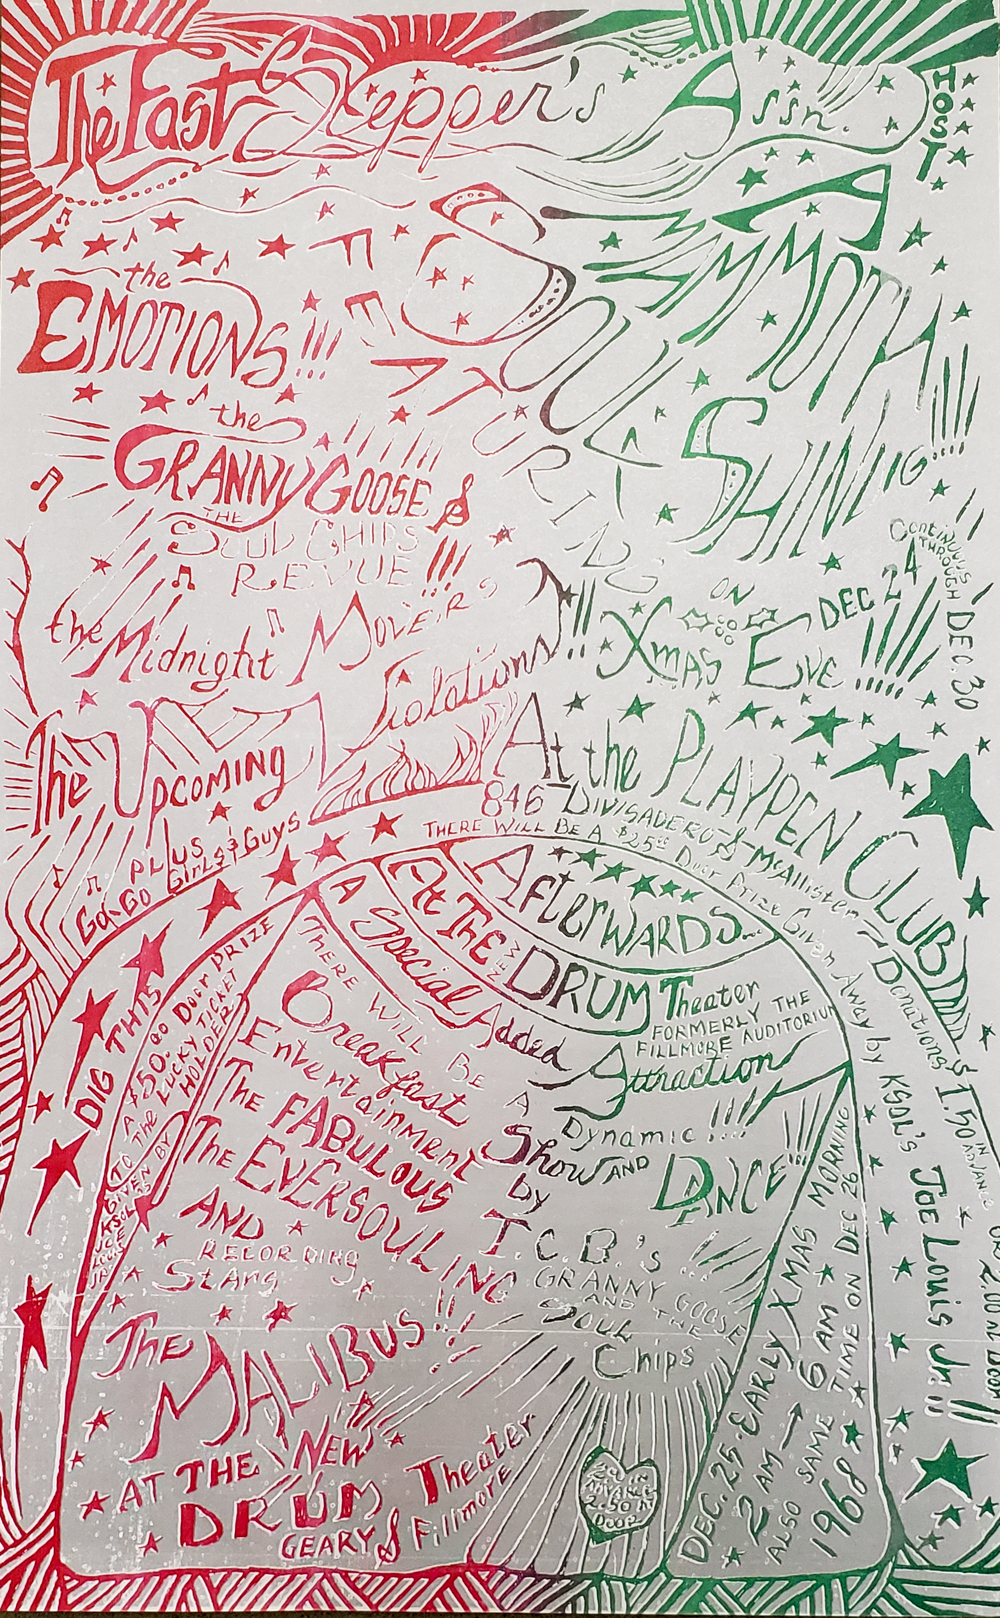 The Fast Stepper's Assn.
HOST
A
MAMMOTH
SOUL
SHINDIG!!!!
FEATURING
the
EMOTIONS!!!
the
GRANNY GOOSE &
THE
SOUL CHIPS
REVUE!!!
the Midnight Movers
Violations!!
The Upcoming
PLUS
GO-GO Girls & Guys
ON
Xmas Eve DEC 24
Continuous
THROUGH
DEC. 30
At the PLAYPEN CLUB
846 DIVISADERO & McAllister — Donations $1.50 IN ADVANCE OR 2.00 AT DOOR
THERE WILL BE A $25.00 Door Prize Given Away by KSOL's Joe Louis Jr.!!
AFTERWARDS...
At THE NEW DRUM Theater
FORMERLY THE
FILLMORE AUDITORIUM
A Special Added Attraction
DIG THIS
A $50.00 DOOR PRIZE
TO THE LUCKY TICKET
HOLDER
GIVEN BY
THERE WILL BE A
Dynamic!!!!
Breakfast Show AND DANCE!!!
Entertainment by
The FABULOUS T.C.B.'s...
The EVERSOULING!!
GRANNY GOOSE
AND THE
Soul
Chips
AND
RECORDING
Stars
The
MALIBUS!!
AT THE NEW
DRUM Theater
GEARY & Fillmore
IN
ADVANCE
2.50 AT
DOOR
DEC. 25 EARLY XMAS MORNING
2 AM → 6 AM
ALSO SAME TIME ON DEC 26
1968